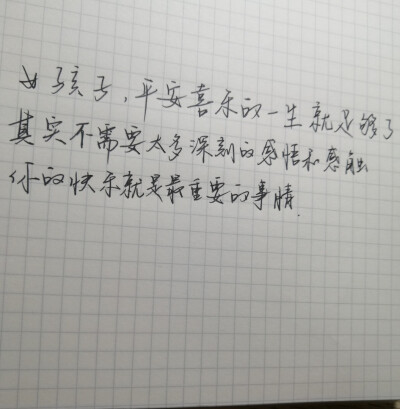 女孩子，平安喜乐的一生就足够了
其实不需要太多深刻的感悟和感触
你的快乐就是最重要的事情.